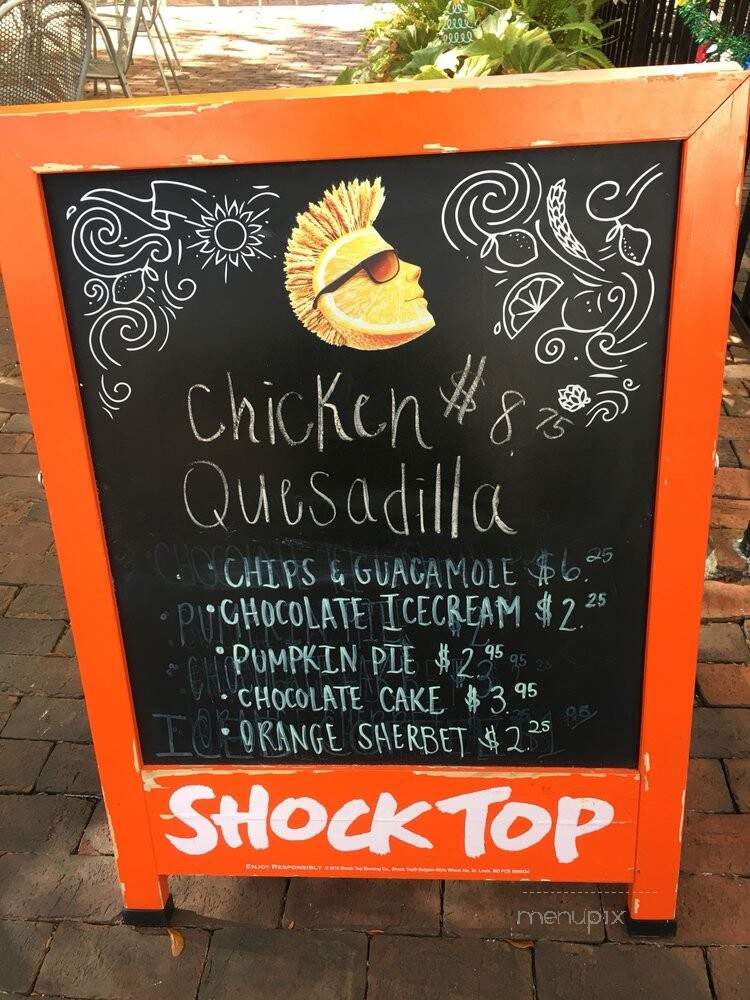 Chicken $8.75
Quesadilla
• CHIPS & GUACAMOLE $6.25
• CHOCOLATE ICECREAM $2.25
• PUMPKIN PIE $2.95
• CHOCOLATE CAKE $3.95
• ORANGE SHERBET $2.25
SHOCK TOP
ENJOY RESPONSIBLY
menupix